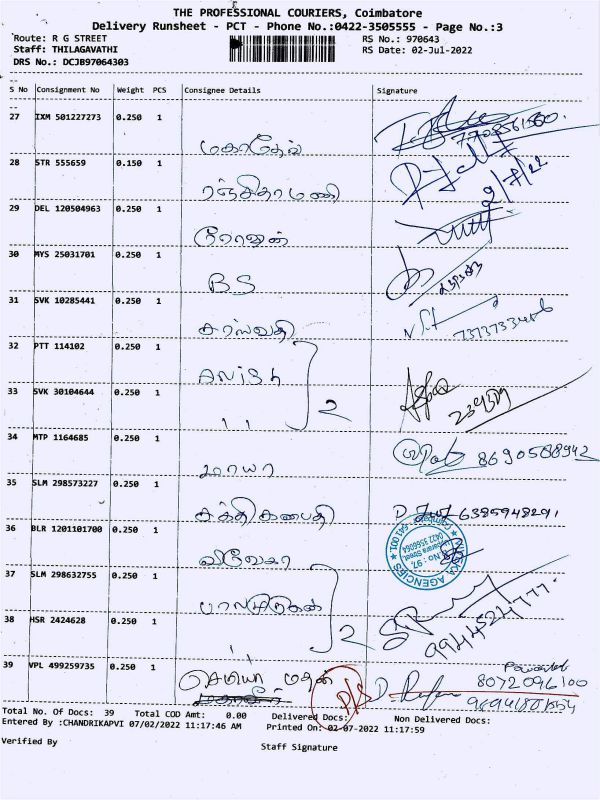 THE PROFESSIONAL COURIERS, Coimbatore
Delivery Runsheet - PCT - Phone No.:0422-3505555 - Page No.:3
Route: R G STREET
RS No.: 970643
Staff: THILAGAVATHI
RS Date: 02-Jul-2022
DRS No.: DCJB97064303
S No Consignment No Weight PCS Consignee Details Signature
27 IXM 501227273 0.250 1 மகாதேவ்
28 STR 555659 0.150 1 ரஞ்சிதாமணி 2/7/22
29 DEL 120504963 0.250 1
30 MYS 25031701 0.250 1 BS
31 SVK 10285441 0.250 1 சரஸ்வதி
32 PTT 114102 0.250 1
33 SVK 30104644 0.250 1 ,, 2
34 MTP 1164685 0.250 1 மாயா 8690588942
35 SLM 298573227 0.250 1 சக்தி கணபதி 6385948291
36 BLR 1201101700 0.250 1 விவேகா
AGENCIES
No: 97,
0422 3566064
641 001
37 SLM 298632755 0.250 1 பாலமுருகன்
38 HSR 2424628 0.250 1 ,, 2 9944524777
39 VPL 499259735 0.250 1 மதன் 8072096100
Total No. Of Docs: 39 Total COD Amt: 0.00 Delivered Docs: Non Delivered Docs:
Entered By :CHANDRIKAPVI 07/02/2022 11:17:46 AM Printed On: 02-07-2022 11:17:59
Verified By
Staff Signature